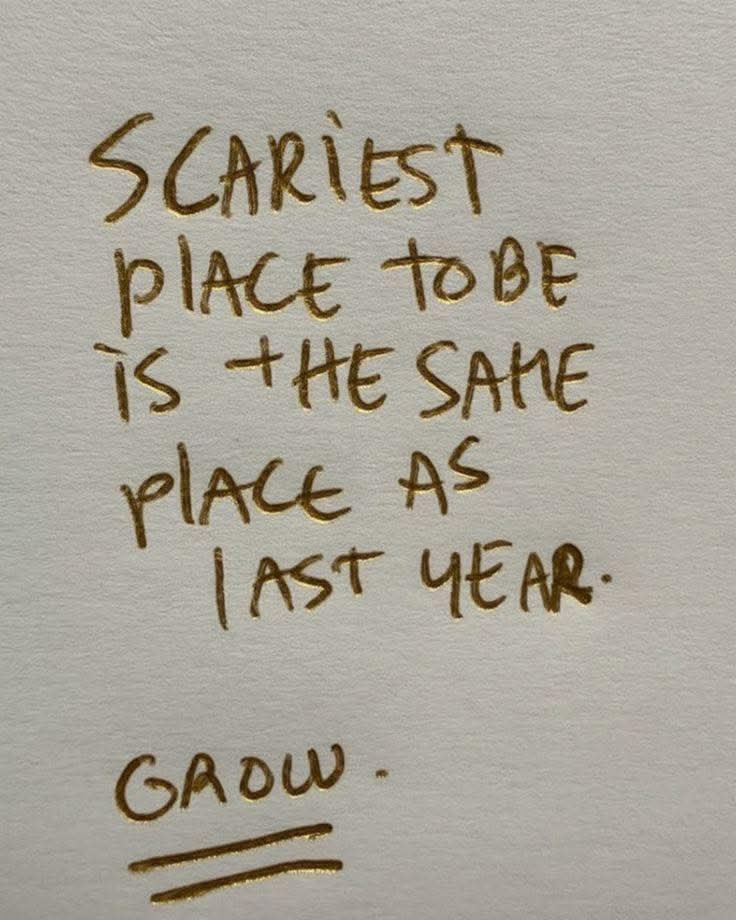 SCARiEST
PlACE TO BE
iS tHE SAME
PlACE AS
lAST YEAR.
GROW.